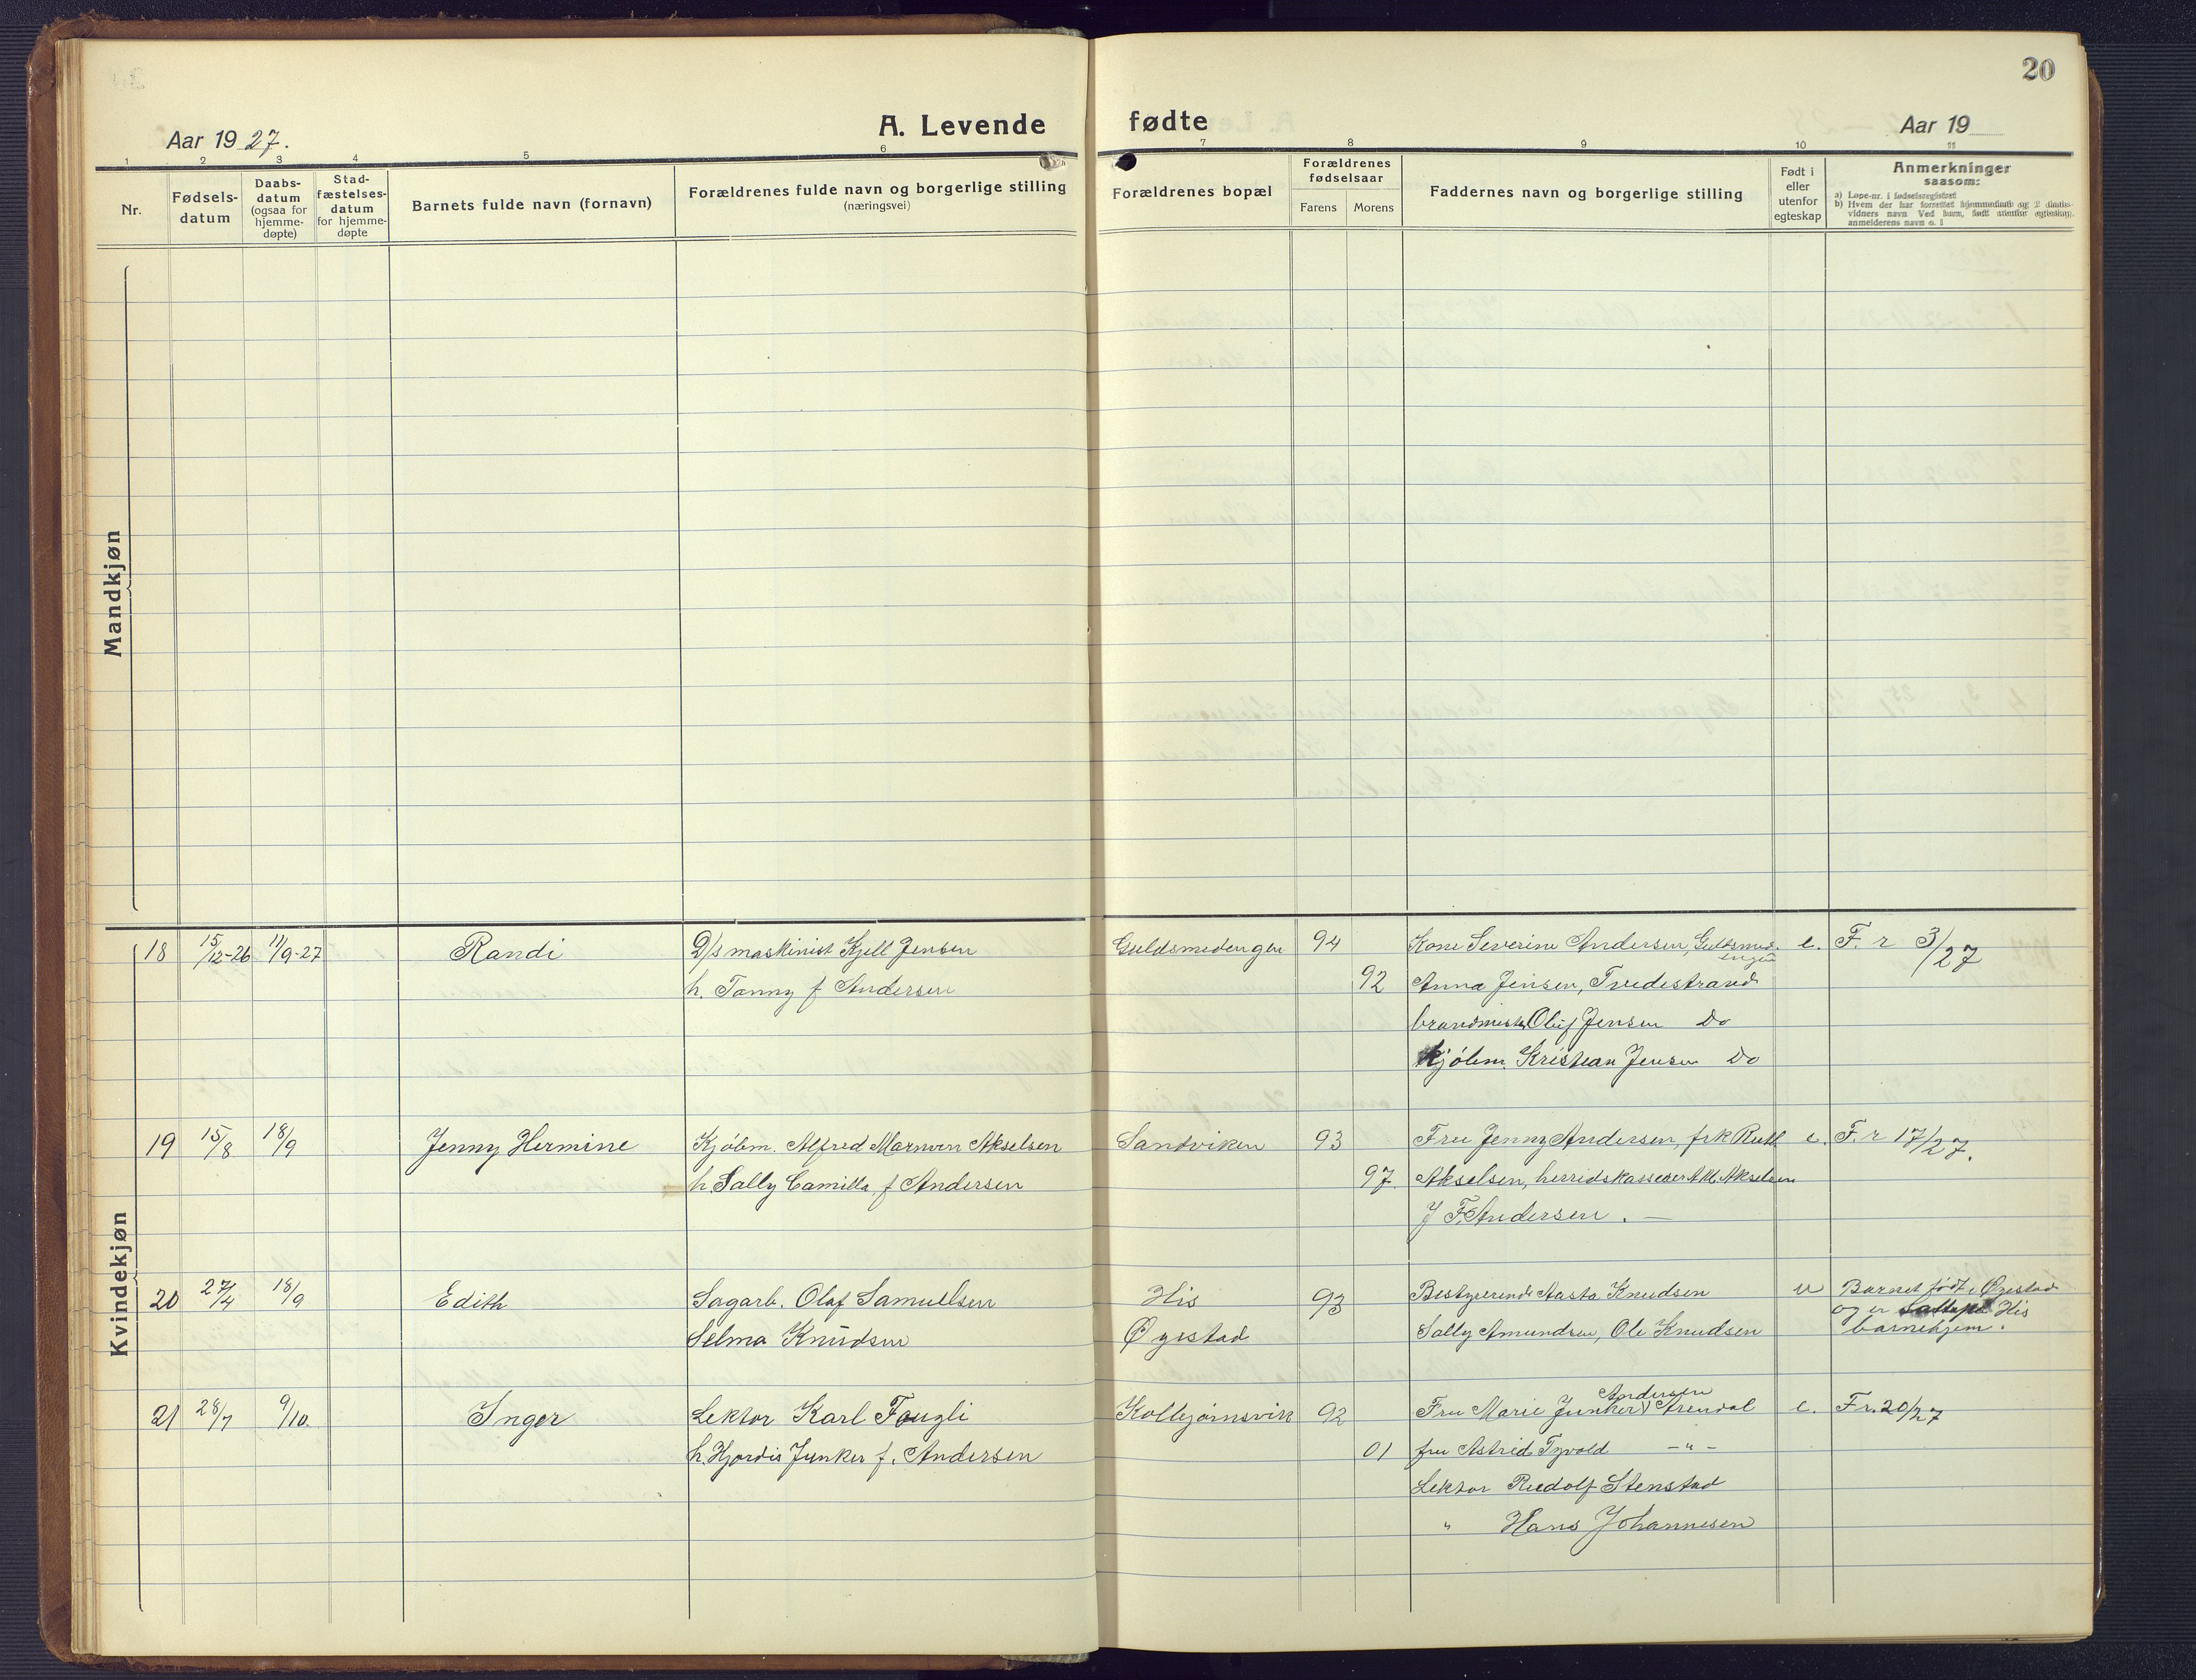 20
Aar 19 27.
A. Levende fødte
Aar 19
1 2 3 4 5 6 7 8 9 10 11
Nr.
Fødsels-
datum
Daabs-
datum
(ogsaa for
hjemme-
døpte)
Stad-
fæstelses-
datum
for hjemme-
døpte
Barnets fulde navn (fornavn)
Forældrenes fulde navn og borgerlige stilling
(næringsvei)
Forældrenes bopæl
Forældrenes
fødselsaar
Farens Morens
Faddernes navn og borgerlige stilling
Født i
eller
utenfor
egteskap
Anmerkninger
saasom:
a) Løpe-nr. i fødselsregistret
b) Hvem der har forrettet hjemmedaab og 2 daabs-
vidners navn Ved barn, født utenfor egteskap,
anmelderens navn o. l
Mandkjøn
Kvindekjøn
18 15/12-26 11/9-27 Randi D/s maskinist Kjell Jensen Guldsmedengen 94 Kone Severine Andersen, Guldsmed- e. F. r 3/27
engen
h. Tanny f Andersen 92 Anna Jensen, Tvedestrand
brandmester Oluf Jensen Do
kjøbm. Kristian Jensen Do
19 15/8 18/9 Jenny Hermine Kjøbm. Alfred Akselsen Sandviken 93 Fru Jenny Andersen, frk Ruth e. F. r 17/27.
h. Sally Camilla f Andersen 97 Akselsen, herridskasserer Akselsen
J F. Andersen. —
20 27/4 18/9 Edith Sagarb. Olaf Samuelsen His 93 Bestyrerinde Aasta Knudsen u Barnet født i Øyestad
og er His
Selma Knudsen Øyestad Sally Amundsen, Ole Knudsen barnehjem.
21 28/7 9/10. Inger Lektor Karl Fougli Kolbjørnsvik 92 Fru Marie Junker Andersen Arendal e. F r. 20/27
h. Hjordis Junker f. Andersen 01 fru Astrid Tyvold -"-
Lektor Rudolf Stenstad
" Hans Johannesen